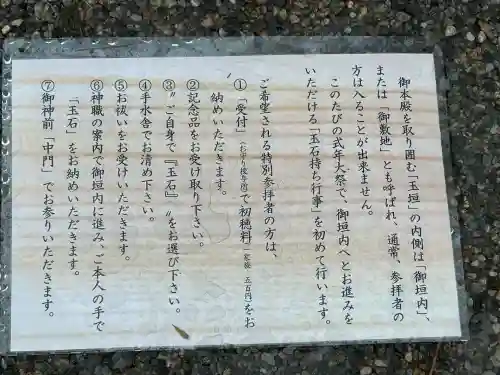 御本殿を取り囲む「玉垣」の内側は「御垣内」、
または「御敷地」とも呼ばれ、通常、参拝者の
方は入ることが出来ません。
このたびの式年大祭で、御垣内へとお進みを
いただける「玉石持ち行事」を初めて行います。
ご希望される特別参拝者の方は、
①「受付」(お守り授与所)で初穂料(一家族 五百円)をお
納めいただきます。
②記念品をお受け取り下さい。
③〃ご自身で『玉石』〃をお選び下さい。
④手水舎でお清め下さい。
⑤お祓いをお受けいただきます。
⑥神職の案内で御垣内に進み、ご本人の手で
「玉石」をお納めいただきます。
⑦御神前「中門」でお参りいただきます。